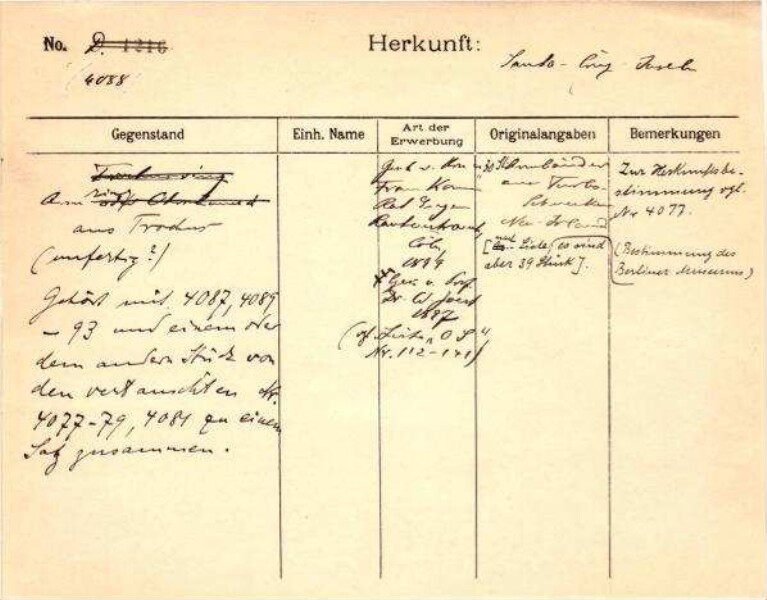 No. D. 1216
Herkunft: Santa-Cruz-Inseln
4088
Gegenstand
Einh. Name
Art der Erwerbung
Originalangaben
Bemerkungen
Trochusring
Armring oder Ohrschmuck
aus Trochus
(unfertig?)
Gehört mit 4087, 4089
- 93 und einem oder
dem andern Stück von
den vertauschten Nr.
4077-79, 4081 zu einem
Satz zusammen.
Gesch. v.
Frau
Rautenstrauch,
Cöln,
1899
Ges. v. Prof.
Dr. W. Joest
1897
(vgl. Liste
Nr. 112-141)
30 St. Armbänder
aus Turbo-
Schnecke
Neu-Irland
[nach Liste, es sind
aber 39 Stück].
Zur Herkunftsbe-
stimmung vgl.
Nr 4077.
(Bestimmung des
Berliner Museums)